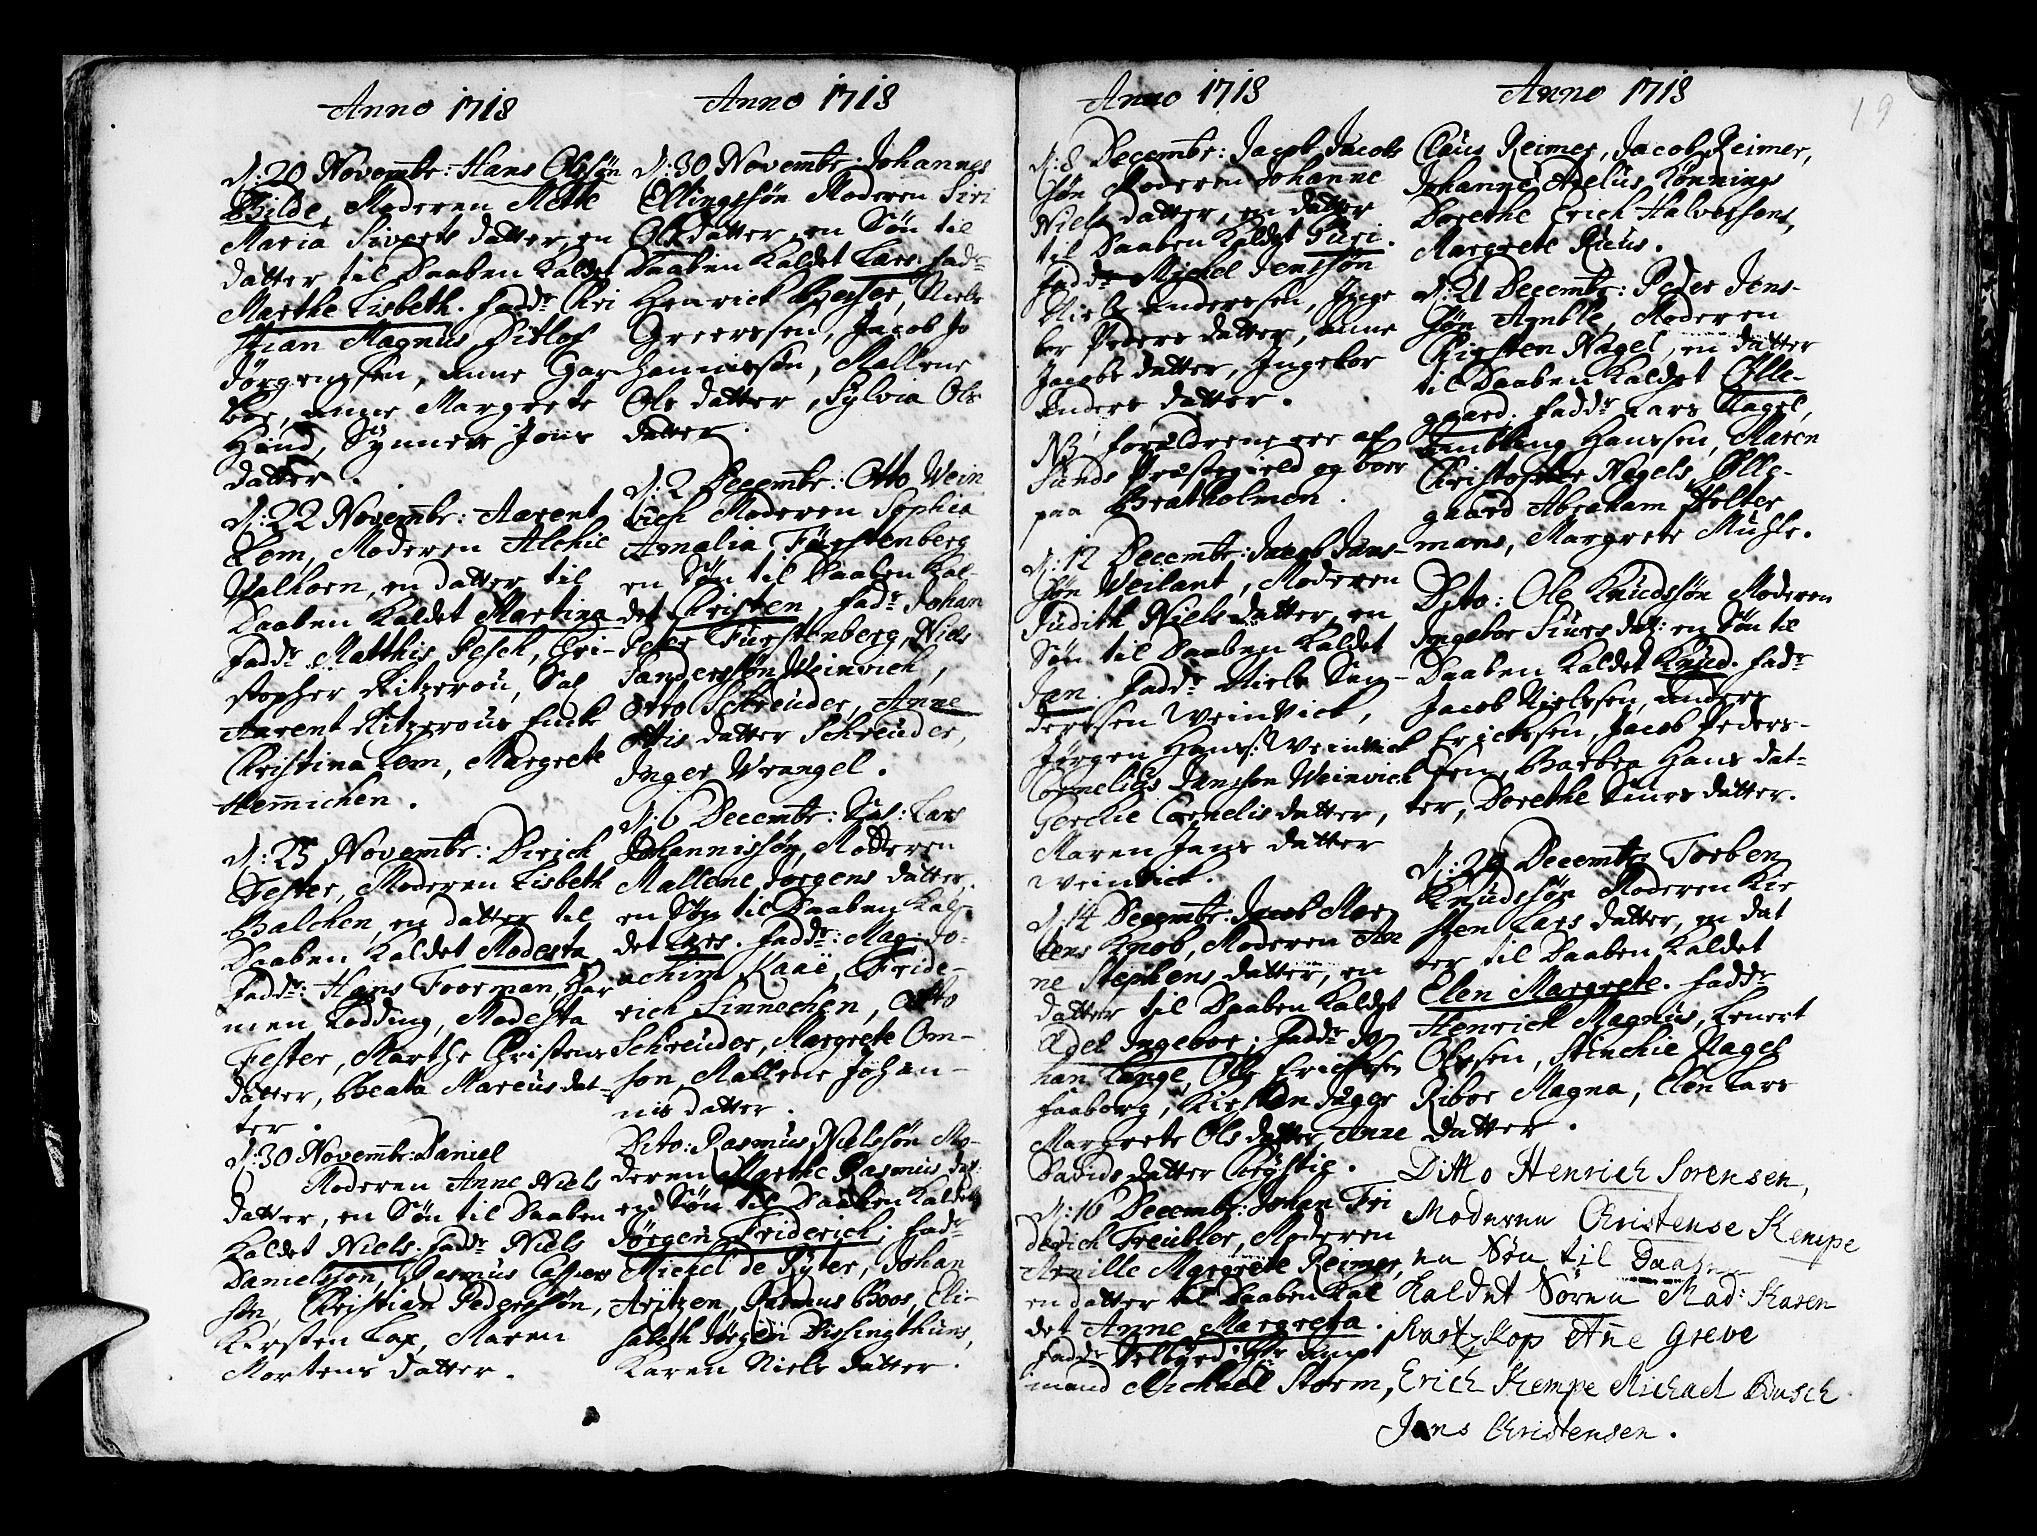 Anno 1718
d: 20 Novembr: Hans Olssøn
Bilde, Moderen Mette
Maria Siverts datter, en
datter til Daaben kaldet
Marthe Lisbeth. fadd: Chri
stian Magnus, Ditlof
Jørgenssen, Anne Gar
ber, Anne Margrete
Hind, Synneve Jons
datter.
d: 22 Novembr: Aarent
Lem, Moderen Alchie
Valhorn, en datter til
Daaben kaldet Martina
fadd: Matthis Pesch, Chri-
stopher Ritzerou, Sal
Aarent Ritzerous Encke
Christina Lem, Margrete
Hemichen.
d: 25 Novembr: Dirich
Fester, Moderen Lisbeth
Balchen, en datter til
Daaben kaldet Modesta
fadd: Hans Foorman, Har
men Kodding, Modesta
Fester, Marthe Christens
datter, Beata Marcus dat-
ter.
d: 30 Novembr: Daniel
Moderen Anne Niels
datter, en Søn til Daaben
kaldet Niels. fadd: Niels
Danielssøn, Rasmus Caspers
søn, Christian Pederssøn,
Kirsten Lax, Maren
Mortens datter.
Anno 1718
d: 30 Novembr: Johannes
Ellingssøn Moderen Siri
Ols datter, en Søn til
Daaben kaldet Lars. fad:
Henrich Beyer, Niels
Greerssen, Jacob Jo
hannissøn, Mallene
Ols datter, Sylvia Ols
datter.
d: 2 Decembr: Otto Wein
wich Moderen Sophia
Amalia Fürstenberg
en Søn til Daaben kal
det Christen, fad: Johan
Peter Fürstenberg, Niels
Sanderssøn Weinwich,
Otto Schreuder, Anne
Ottis datter Schreuder,
Inger Wrangel.
d: 6 Decembr: Sal: Lars
Johannissøn, Moderen
Mallene Jørgens datter,
en Søn til Daaben kal-
det Lars. fadd: Mag: Jo-
achim Kaae, Fride-
rich Linnechen, Otto
Schreuder, Margrete Om-
son, Mallene Johan-
nis datter.
Dito: Rasmus Nielssøn Mo-
deren Marthe Rasmus dat:
en Søn til Daaben kaldet
Jørgen Friderich; fad:
Michel de Ryter, Johan
Aritzen, Rasmus Boos, Eli-
sabeth Jørgen Dissingthuns,
Karen Niels datter.
Anno 1718
d: 8 Decembr: Jacob Jacobs
søn Moderen Johanne
Niels datter, en datter
til Daaben kaldet Guri.
fadd: Michel Jenssøn
Niels Anderssen, Inge
bor Peders datter, Anne
Jacobs datter, Ingebor
Anders datter.
NB, forældrene ere af
Sunds Præstegield og boer
paa Bratholmen.
d: 12 Decembr: Jacob Jans-
søn Weilant, Moderen
Judith Niels datter, en
Søn til Daaben kaldet
Jan. fadd: Niels San-
derssen Weinvick,
Jørgen Hanss: Weinvick
Cornelius Janssøn Weinvick
Gerchie Cornelis datter,
Maren Jans datter
Weinvick.
d: 14 Decembr: Jacob Mor
tens Knob, Moderen An
ne Stephens datter, en
datter til Daaben kaldet
Adel Ingebor; fadd: Jo
han Lange, Ole Ericksen
faaborg, Kirsten Jæger
Margrete Ols datter, Anne
Davids datter Chrystie.
d: 16 Decembr: Johan Fri
derich Treubler, Moderen
Arnille Margrete Reimer,
en datter til Daaben kal
det Anne Margreta.
fadd: Velbyrd: Hr Ampt
mand Michael Storm,
Anno 1718
19
Claus Reimer, Jacob Reimer,
Johanne Atelus Kønnings
Dorethe Erich Halvorsens,
Margrete Rieus.
d: 21 Decembr: Peder Jens-
søn Amble, Moderen
Kirsten Nagel, en datter
til Daaben kaldet Olle-
gaard. fadd: Lars Nagel,
Ambling Hanssen, Maren
Christopher Nagels, Olle-
gaard Abraham Holter
mans, Margrete Muhle.
Dito: Ole Knudssøn Moderen
Ingebor Siurs dat: en Søn til
Daaben kaldet Knud. fad:
Jacob Nielssen, Anders
Erickssen, Jacob Peders-
sen, Barbra Hans dat-
ter, Dorethe Siurs datter.
d: 29 Decembr: Torben
Knudssøn Moderen Kir
sten Lars datter, en dat
ter til Daaben kaldet
Elen Margrete. fadd:
Henrich Magnus, Lenert
Olssen, Stinchie Nagel
Ribor Magna, Elen Lars
datter.
Ditto Henrich Sorensen,
Moderen Christense Kempe
en Søn til Daaben
kaldet Søren Mad: Karen
Svartzkop Ane Greve
Erich Kempe Michael Busch.
Jens Christensen.